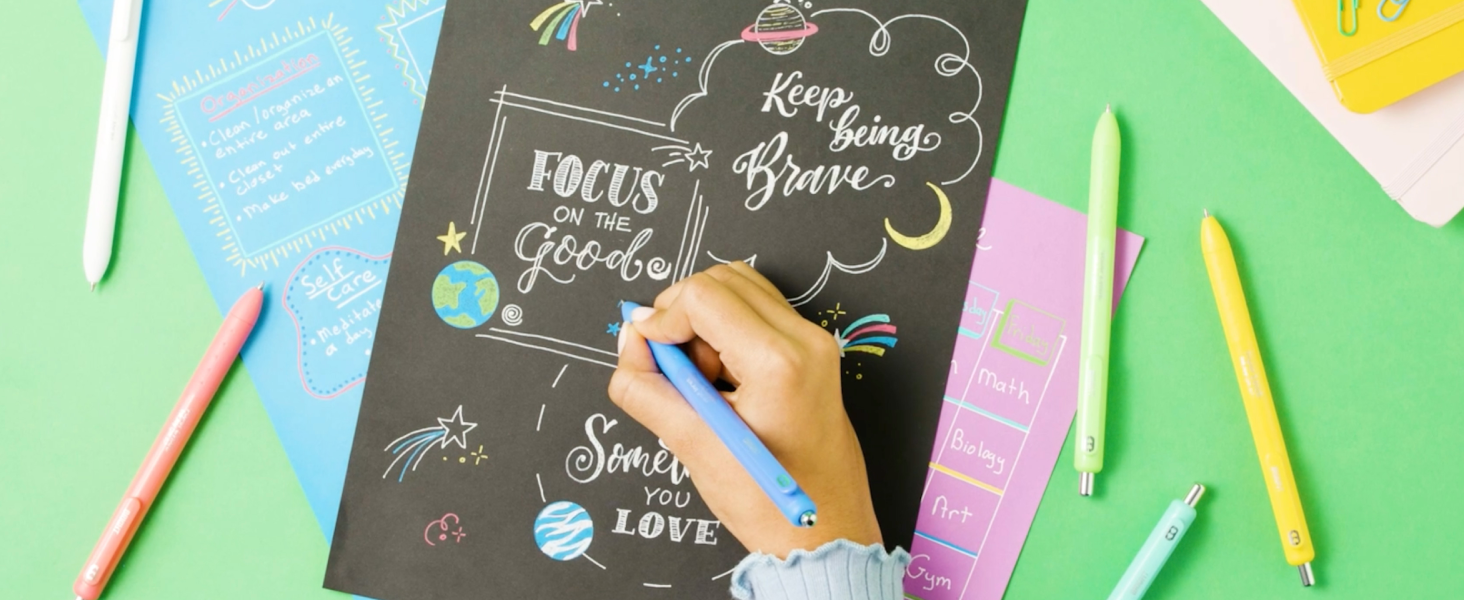 Organization
• Clean/organize an
entire area
• Clean out entire
closet
• Make bed everyday
Self
Care
• Meditate
a day
FOCUS
ON THE
Good
Keep
being
Brave
YOU
LOVE
Friday
Math
Biology
Art
Gym